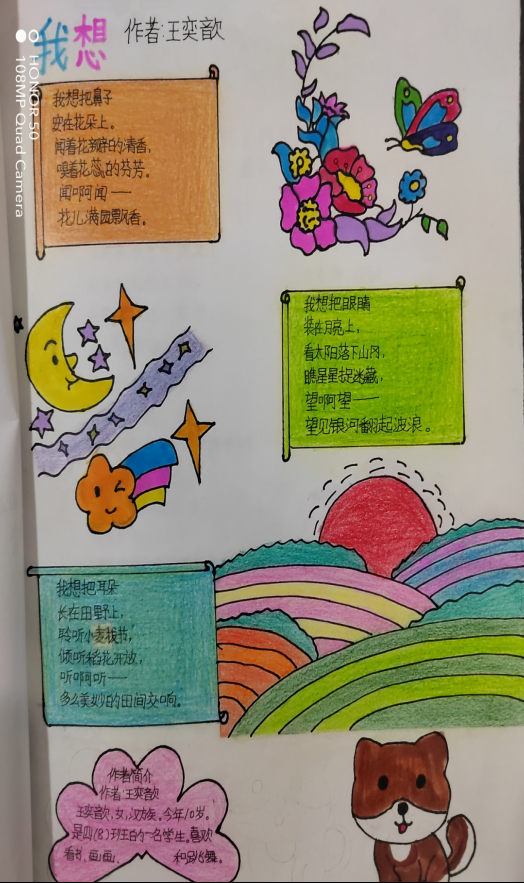 我想
作者:王奕歆
我想把鼻子
安在花朵上。
闻着花瓣的清香,
嗅着花蕊的芬芳。
闻啊闻——
花儿满园飘香。
我想把眼睛
装在月亮上,
看太阳落下山冈,
瞧星星捉迷藏,
望啊望——
望见银河翻起波浪。
我想把耳朵
长在田野上,
聆听小麦拔节,
倾听稻花开放,
听啊听——
多么美妙的田间交响。
作者简介
作者:王奕歆
王奕歆,女,汉族。今年10岁。
是四(8)班的一名学生。喜欢
看书,画画,和跳舞。
HONOR 50
108MP Quad Camera